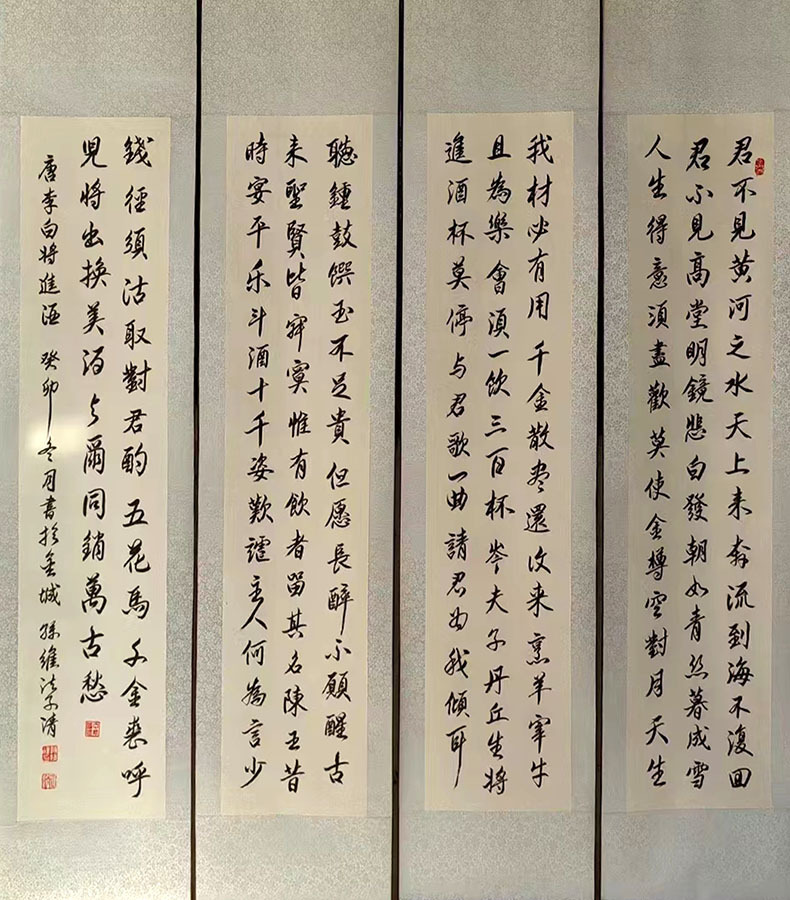 君不見黃河之水天上来奔流到海不復回
君不見高堂明鏡悲白發朝如青丝暮成雪
人生得意須盡歡莫使金樽空對月天生
我材必有用千金散尽還復来烹羊宰牛
且為樂會須一飲三百杯岑夫子丹丘生將
進酒杯莫停与君歌一曲請君为我傾耳
聽鍾鼓饌玉不足貴但愿長醉不願醒古
来聖賢皆寂寞惟有飲者留其名陳王昔
時宴平乐斗酒十千恣歡謔主人何為言少
錢徑須沽取對君酌五花馬千金裘呼
兒將出換美酒与爾同銷萬古愁
唐李白將進酒 癸卯冬月書於金城 孫維